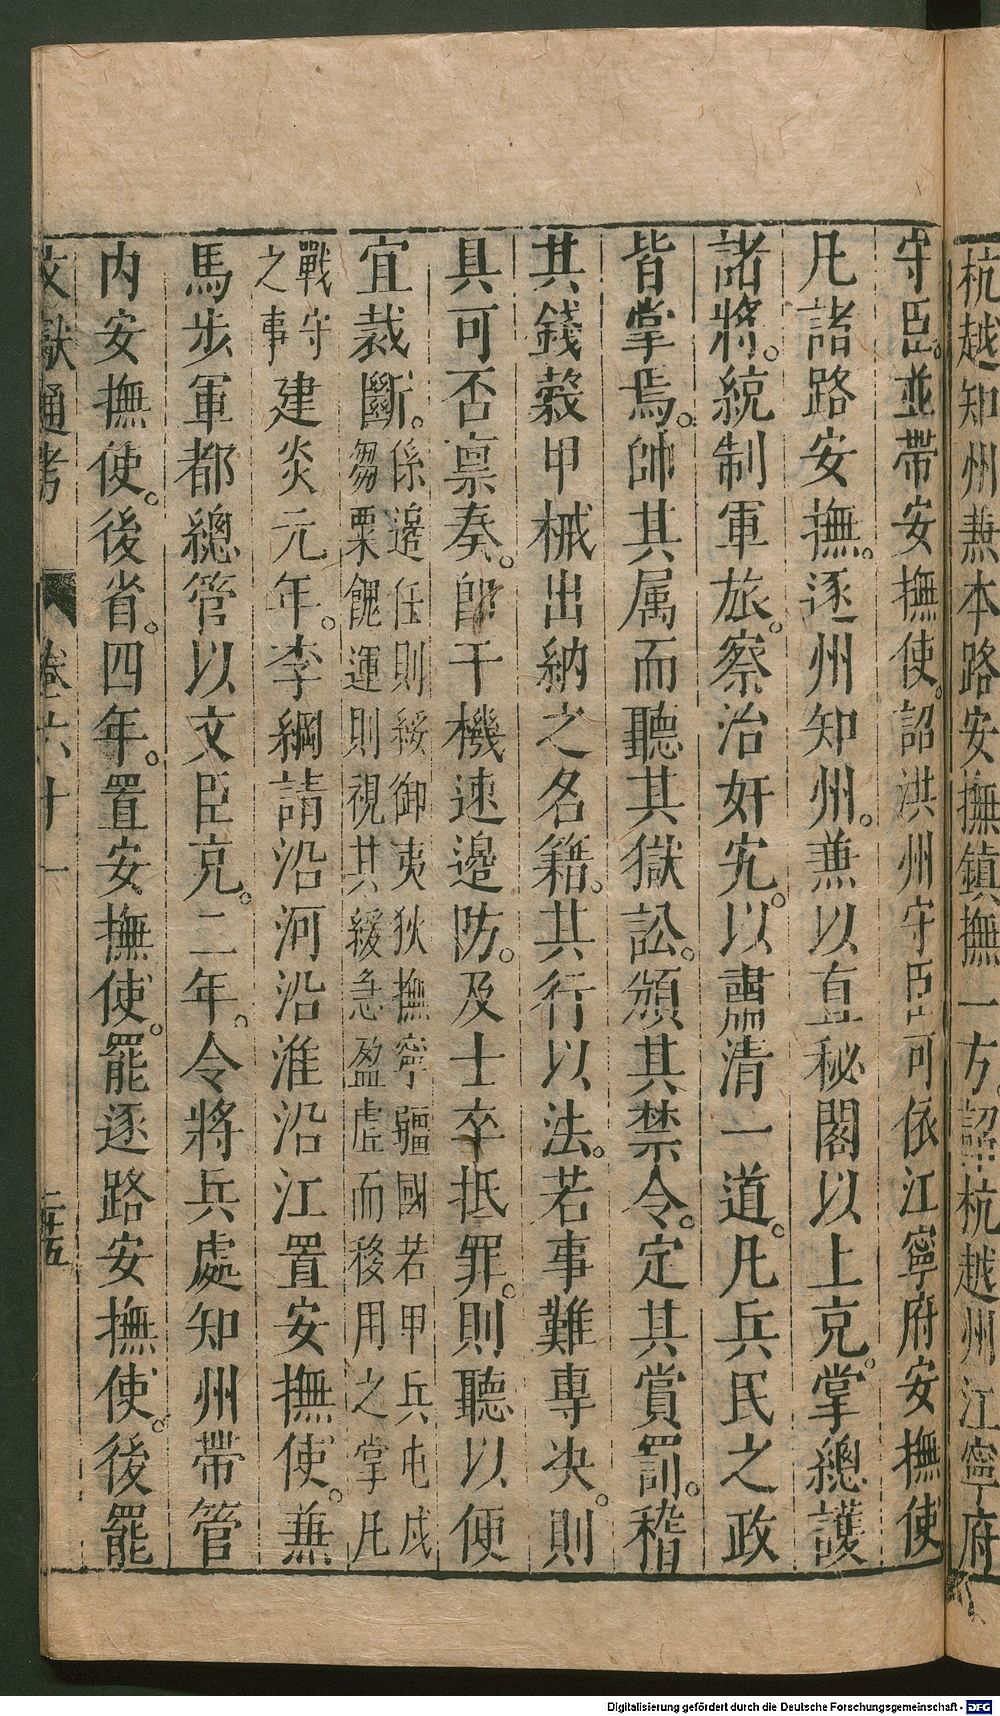 杭越知州兼本路安撫鎮撫一方詔杭越州江寧府
守臣。並帶安撫使。詔洪州守臣可依江寧府安撫使
凡諸路安撫。逐州知州。兼以直秘閣以上充。掌總護
諸將。統制軍旅。察治奸宄。以肅清一道。凡兵民之政
皆掌焉。帥其属而聽其獄訟。頒其禁令。定其賞罰。稽
其錢穀甲械出納之名籍。其行以法。若事難專决。則
具可否禀奏。即干機速邊防。及士卒抵罪。則聽以便
宜裁斷。係邊任則綏御夷狄撫寧疆國若甲兵屯戍
芻粟餽運則視其緩急盈虛而移用之掌凡
戰守
之事建炎元年。李綱請沿河沿淮沿江置安撫使。兼
馬步軍都總管以文臣充。二年。令將兵處知州帶管
内安撫使。後省。四年。置安撫使。罷逐路安撫使。後罷
文獻通考 卷六十一 二十五
Digitalisierung gefördert durch die Deutsche Forschungsgemeinschaft - DFG